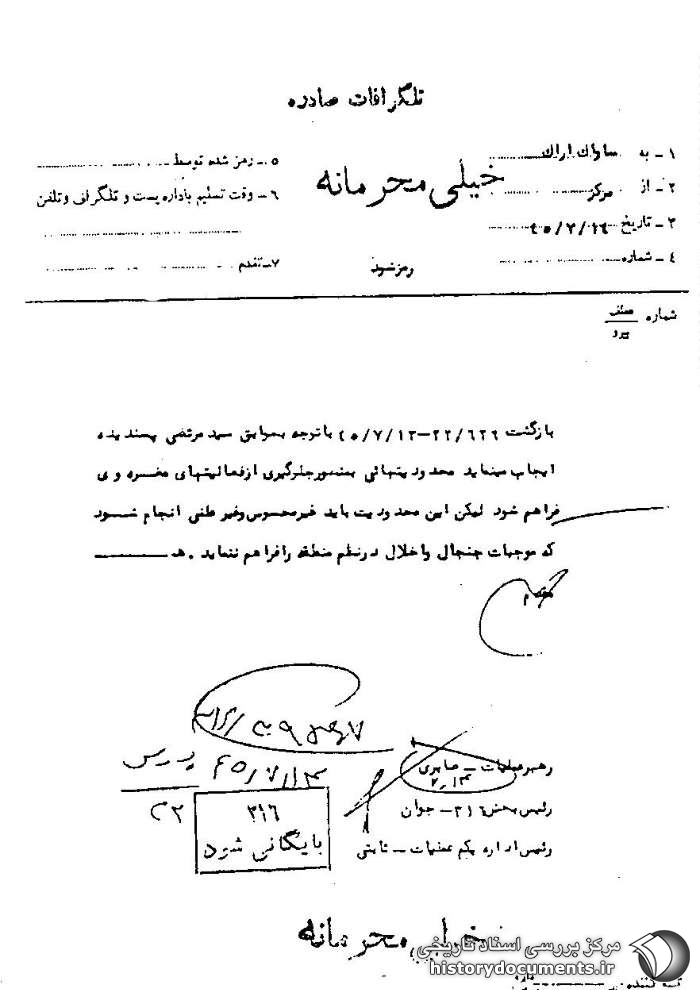 تلگرافات صادره
۱ـ به ساواک اراک
۲ـ از مرکز
۳ـ تاریخ
۴ـ شماره
خیلی محرمانه
رمز شود
۵ـ رمز شده توسط
۶ـ وقت تسلیم باداره پست و تلگراف و تلفن
۷ـ تقدم
شماره عطف
پیرو
بازگشت با توجه بسوابق سید مرتضی پسندیده
ایجاب مینماید محدودیتهائی بمنظور جلوگیری از فعالیتهای مضره وی
فراهم شود لیکن این محدودیت باید غیرمحسوس و غیر علنی انجام شود
که موجبات جنجال و اخلال در نظم منطقه را فراهم ننماید. هـ
مقدم
رهبر عملیات ـ صابری
رئیس بخش ۳۱۶ ـ جوان
رئیس اداره یکم عملیات ـ ثابتی
۳۱۶
بایگانی شود
خیلی محرمانه
مرکز بررسی اسناد تاریخی
historydocuments.ir